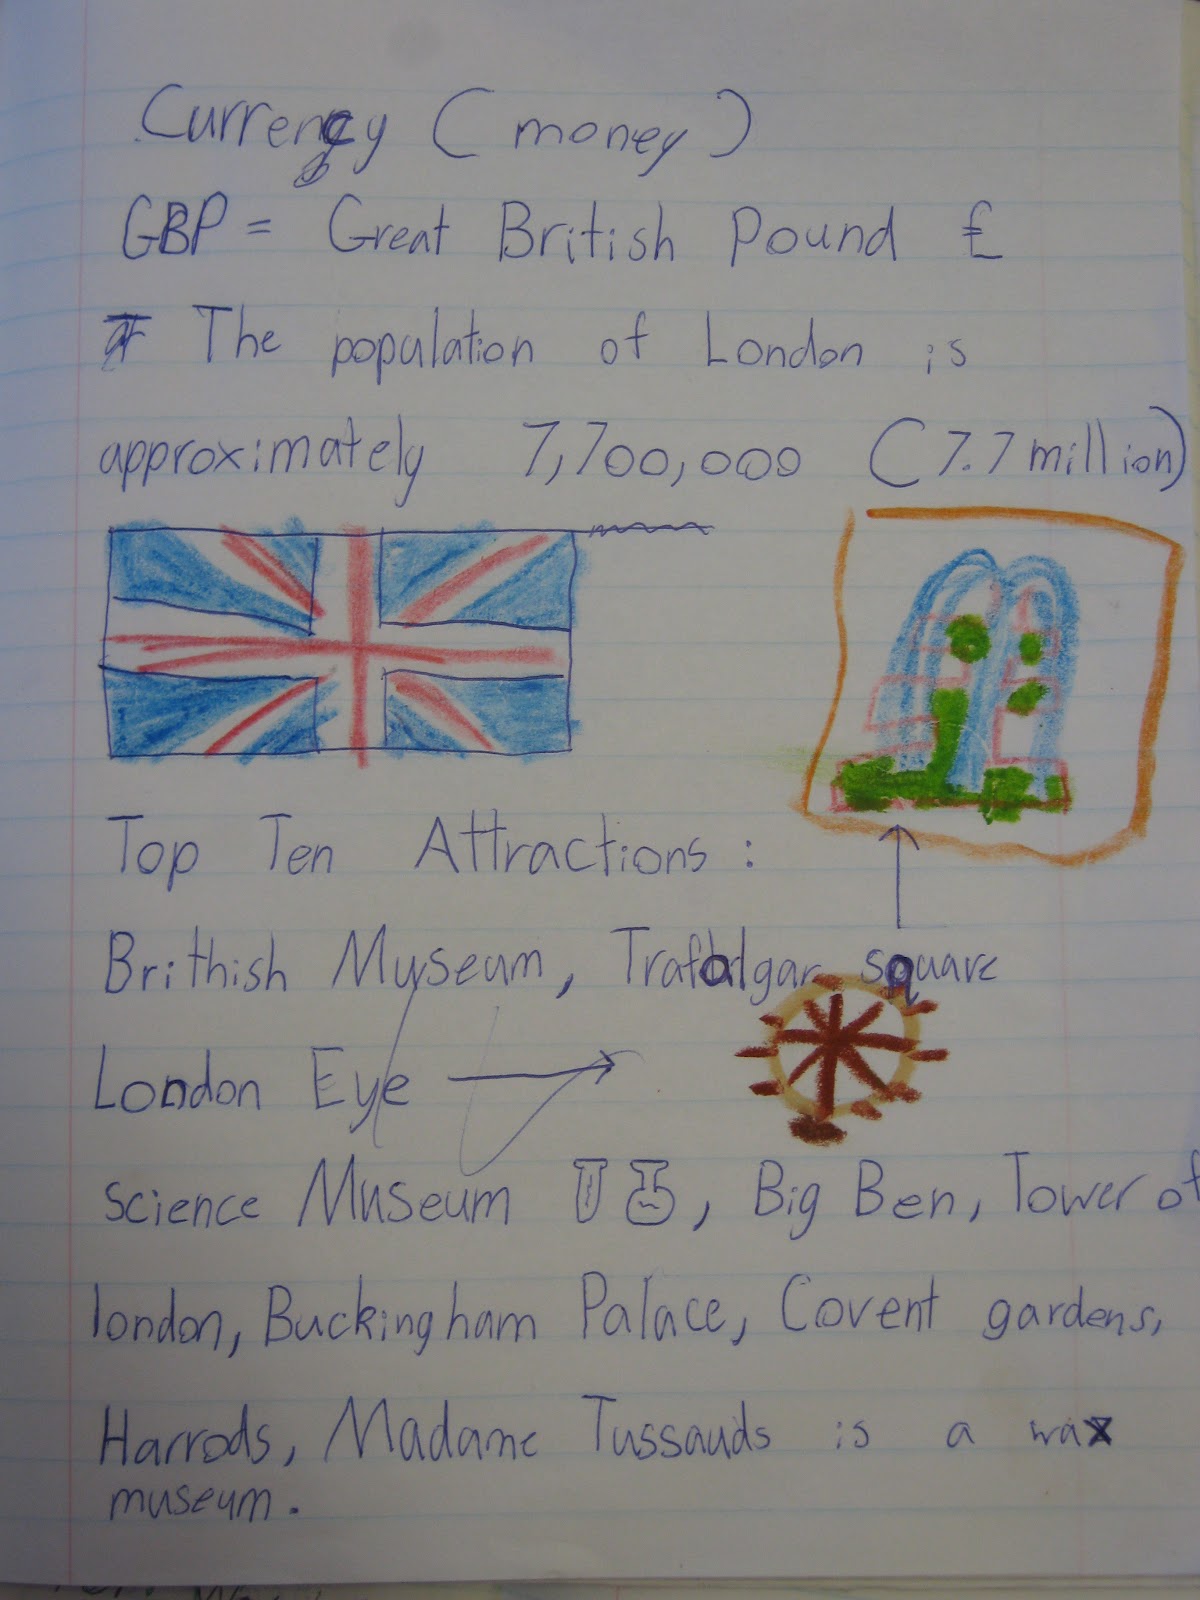 Currency (money)
GBP = Great British Pound £
The population of London is
approximately 7,700,000 (7.7 million)
Top Ten Attractions :
Brithish Myseum, Trafalgar square
London Eye
science Museum , Big Ben, Tower of
london, Buckingham Palace, Covent gardens,
Harrods, Madame Tussauds is a wax
museum.